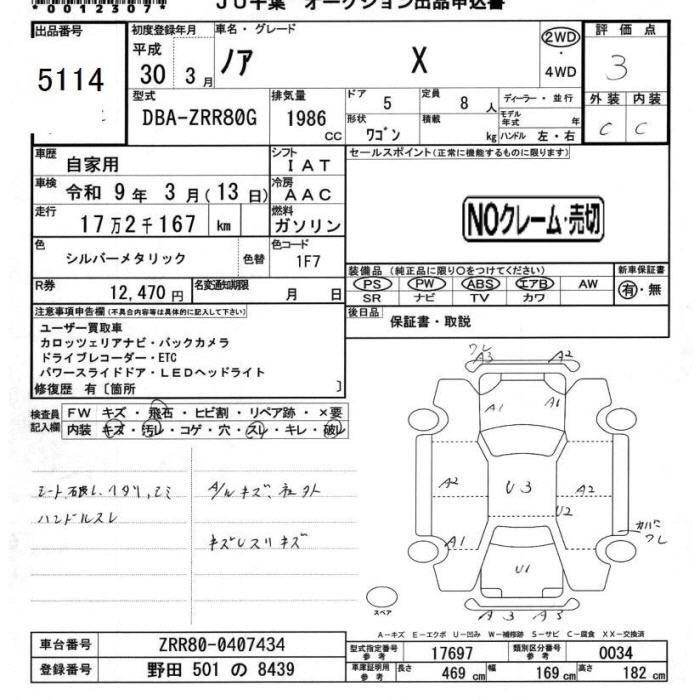 *0012307*
JU千葉 オークション出品申込書
出品番号 5114
初度登録年月 平成 30 3月
車名・グレード ノア X
2WD ・ 4WD
評価点 3
外装 内装
C C
型式 DBA-ZRR80G
排気量 1986 cc
ドア 5
定員 8人
ディーラー・並行
形状 ワゴン
積載 kg
モデル年式 年
ハンドル 左・右
車歴 自家用
シフト IAT
セールスポイント(正常に機能するものに限ります)
車検 令和 9年 3月(13日)
冷房 AAC
走行 17万2千167 km
燃料 ガソリン
NOクレーム・売切
色 シルバーメタリック 色替
色コード 1F7
R券 12,470円
名変通知期限 月 日
装備品(純正品に限り○をつけてください)
PS PW ABS エアB AW
SR ナビ TV カワ
新車保証書 有・無
後日品 保証書・取説
注意事項申告欄(不具合内容等は具体的に記入して下さい)
ユーザー買取車
カロッツェリアナビ・バックカメラ
ドライブレコーダー・ETC
パワースライドドア・LEDヘッドライト
修復歴 有〔箇所 〕
検査員記入欄
FW キズ・飛石・ヒビ割・リペア跡・×要
内装 キズ・汚レ・コゲ・穴・スレ・キレ・破レ
シート破レ、ヘタリ、シミ
ハンドルスレ
A/Wキズ、
キズ
ワレ
A3 A2
A1 A1
A2 U3 A2
U2
A1
カバー
ワレ
U1
A3 A3
スペア
A−キズ E−エクボ U−凹み W−補修跡 S−サビ C−腐食 XX−交換済
車台番号 ZRR80-0407434
登録番号 野田 501 の 8439
型式指定番号 参考 17697
類別区分番号 参考 0034
車庫証明用 参考 長さ 469 cm 幅 169 cm 高さ 182 cm